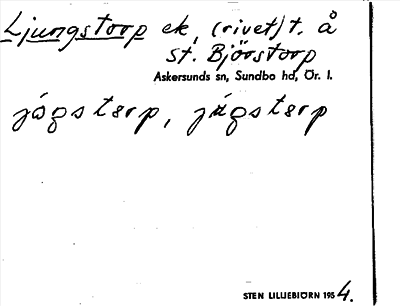 Ljungstorp ek, (rivet) t. å
st. Björstorp
Askersunds sn, Sundbo hd, Ör. l.
jógstorp, júgstorp
STEN LILLIEBIÖRN 1954.